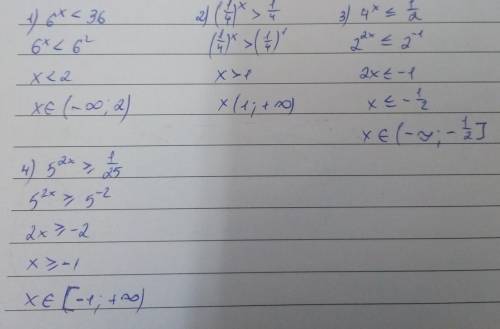 1) 6^x < 36
6^x < 6^2
x < 2
x ∈ (-∞; 2)
2) (1/4)^x > 1/4
(1/4)^x > (1/4)^1
x > 1
x (1; +∞)
3) 4^x ≤ 1/2
2^2x ≤ 2^-1
2x ≤ -1
x ≤ -1/2
x ∈ (-∞; -1/2]
4) 5^2x ≥ 1/25
5^2x ≥ 5^-2
2x ≥ -2
x ≥ -1
x ∈ [-1; +∞)